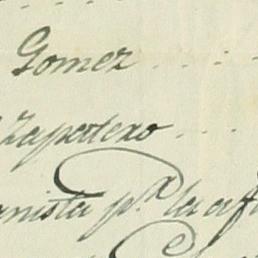 Gomez
Zapatero
anista p.ª la af